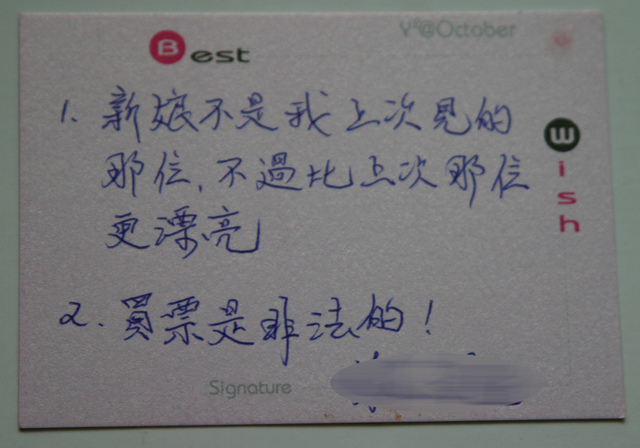 Best
Y²@October
Wish
1. 新娘不是我上次見的
那位、不過比上次那位
更漂亮
2. 買票是非法的!
Signature